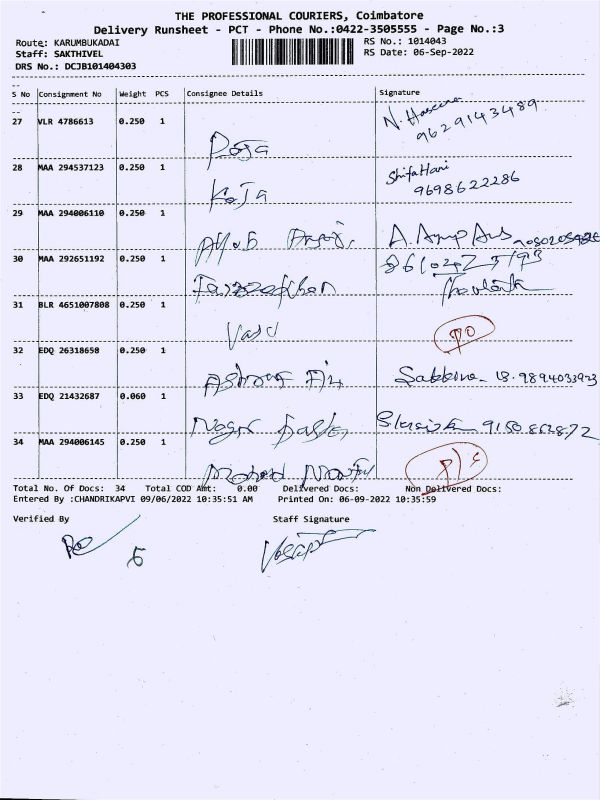 THE PROFESSIONAL COURIERS, Coimbatore
Delivery Runsheet - PCT - Phone No.:0422-3505555 - Page No.:3
Route: KARUMBUKADAI RS No.: 1014043
Staff: SAKTHIVEL RS Date: 06-Sep-2022
DRS No.: DCJB101404303
S No Consignment No Weight PCS Consignee Details Signature
27 VLR 4786613 0.250 1 Roja N. Haseena
9629143489
28 MAA 294537123 0.250 1 KoJa Shifa Hari
9698622286
29 MAA 294006110 0.250 1 Ayub A.
30 MAA 292651192 0.250 1
31 BLR 4651007808 0.250 1 Vasu PO
32 EDQ 26318658 0.250 1 Sakkina 9894033923
33 EDQ 21432687 0.060 1
34 MAA 294006145 0.250 1 Mohamed P/S
Total No. Of Docs: 34 Total COD Amt: 0.00 Delivered Docs: Non Delivered Docs:
Entered By :CHANDRIKAPVI 09/06/2022 10:35:51 AM Printed On: 06-09-2022 10:35:59
Verified By Staff Signature
5